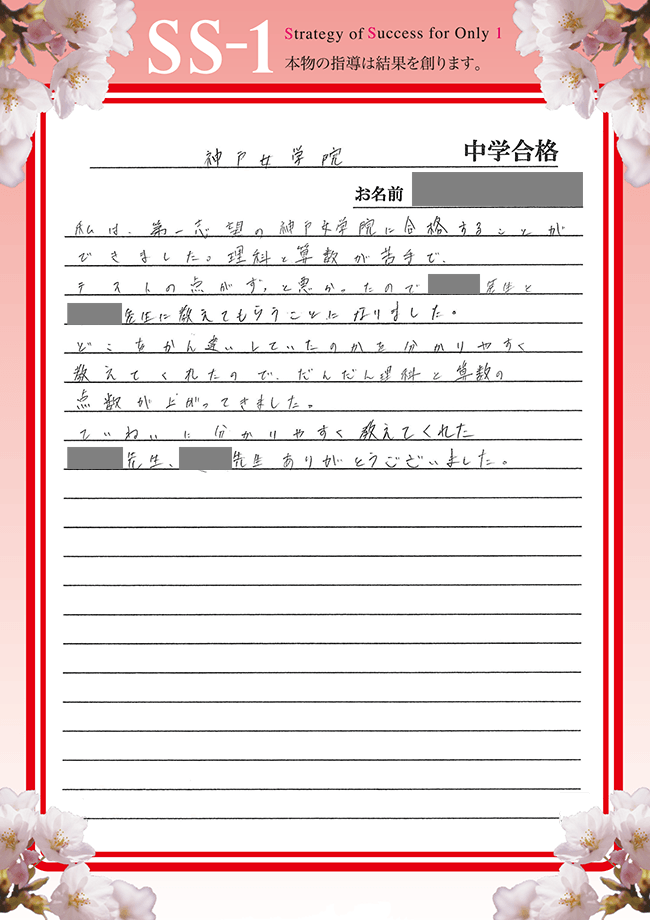 SS-1
Strategy of Success for Only 1
本物の指導は結果を創ります。
神戸女学院 中学合格
お名前
私は、第一志望の神戸女学院に合格することが
できました。理科と算数が苦手で、
テストの点がずっと悪かったので 先生と
先生に教えてもらうことになりました。
どこをかん違いしていたのかを分かりやすく
教えてくれたので、だんだん理科と算数の
点数が上がってきました。
ていねいに分かりやすく教えてくれた
先生、 先生ありがとうございました。